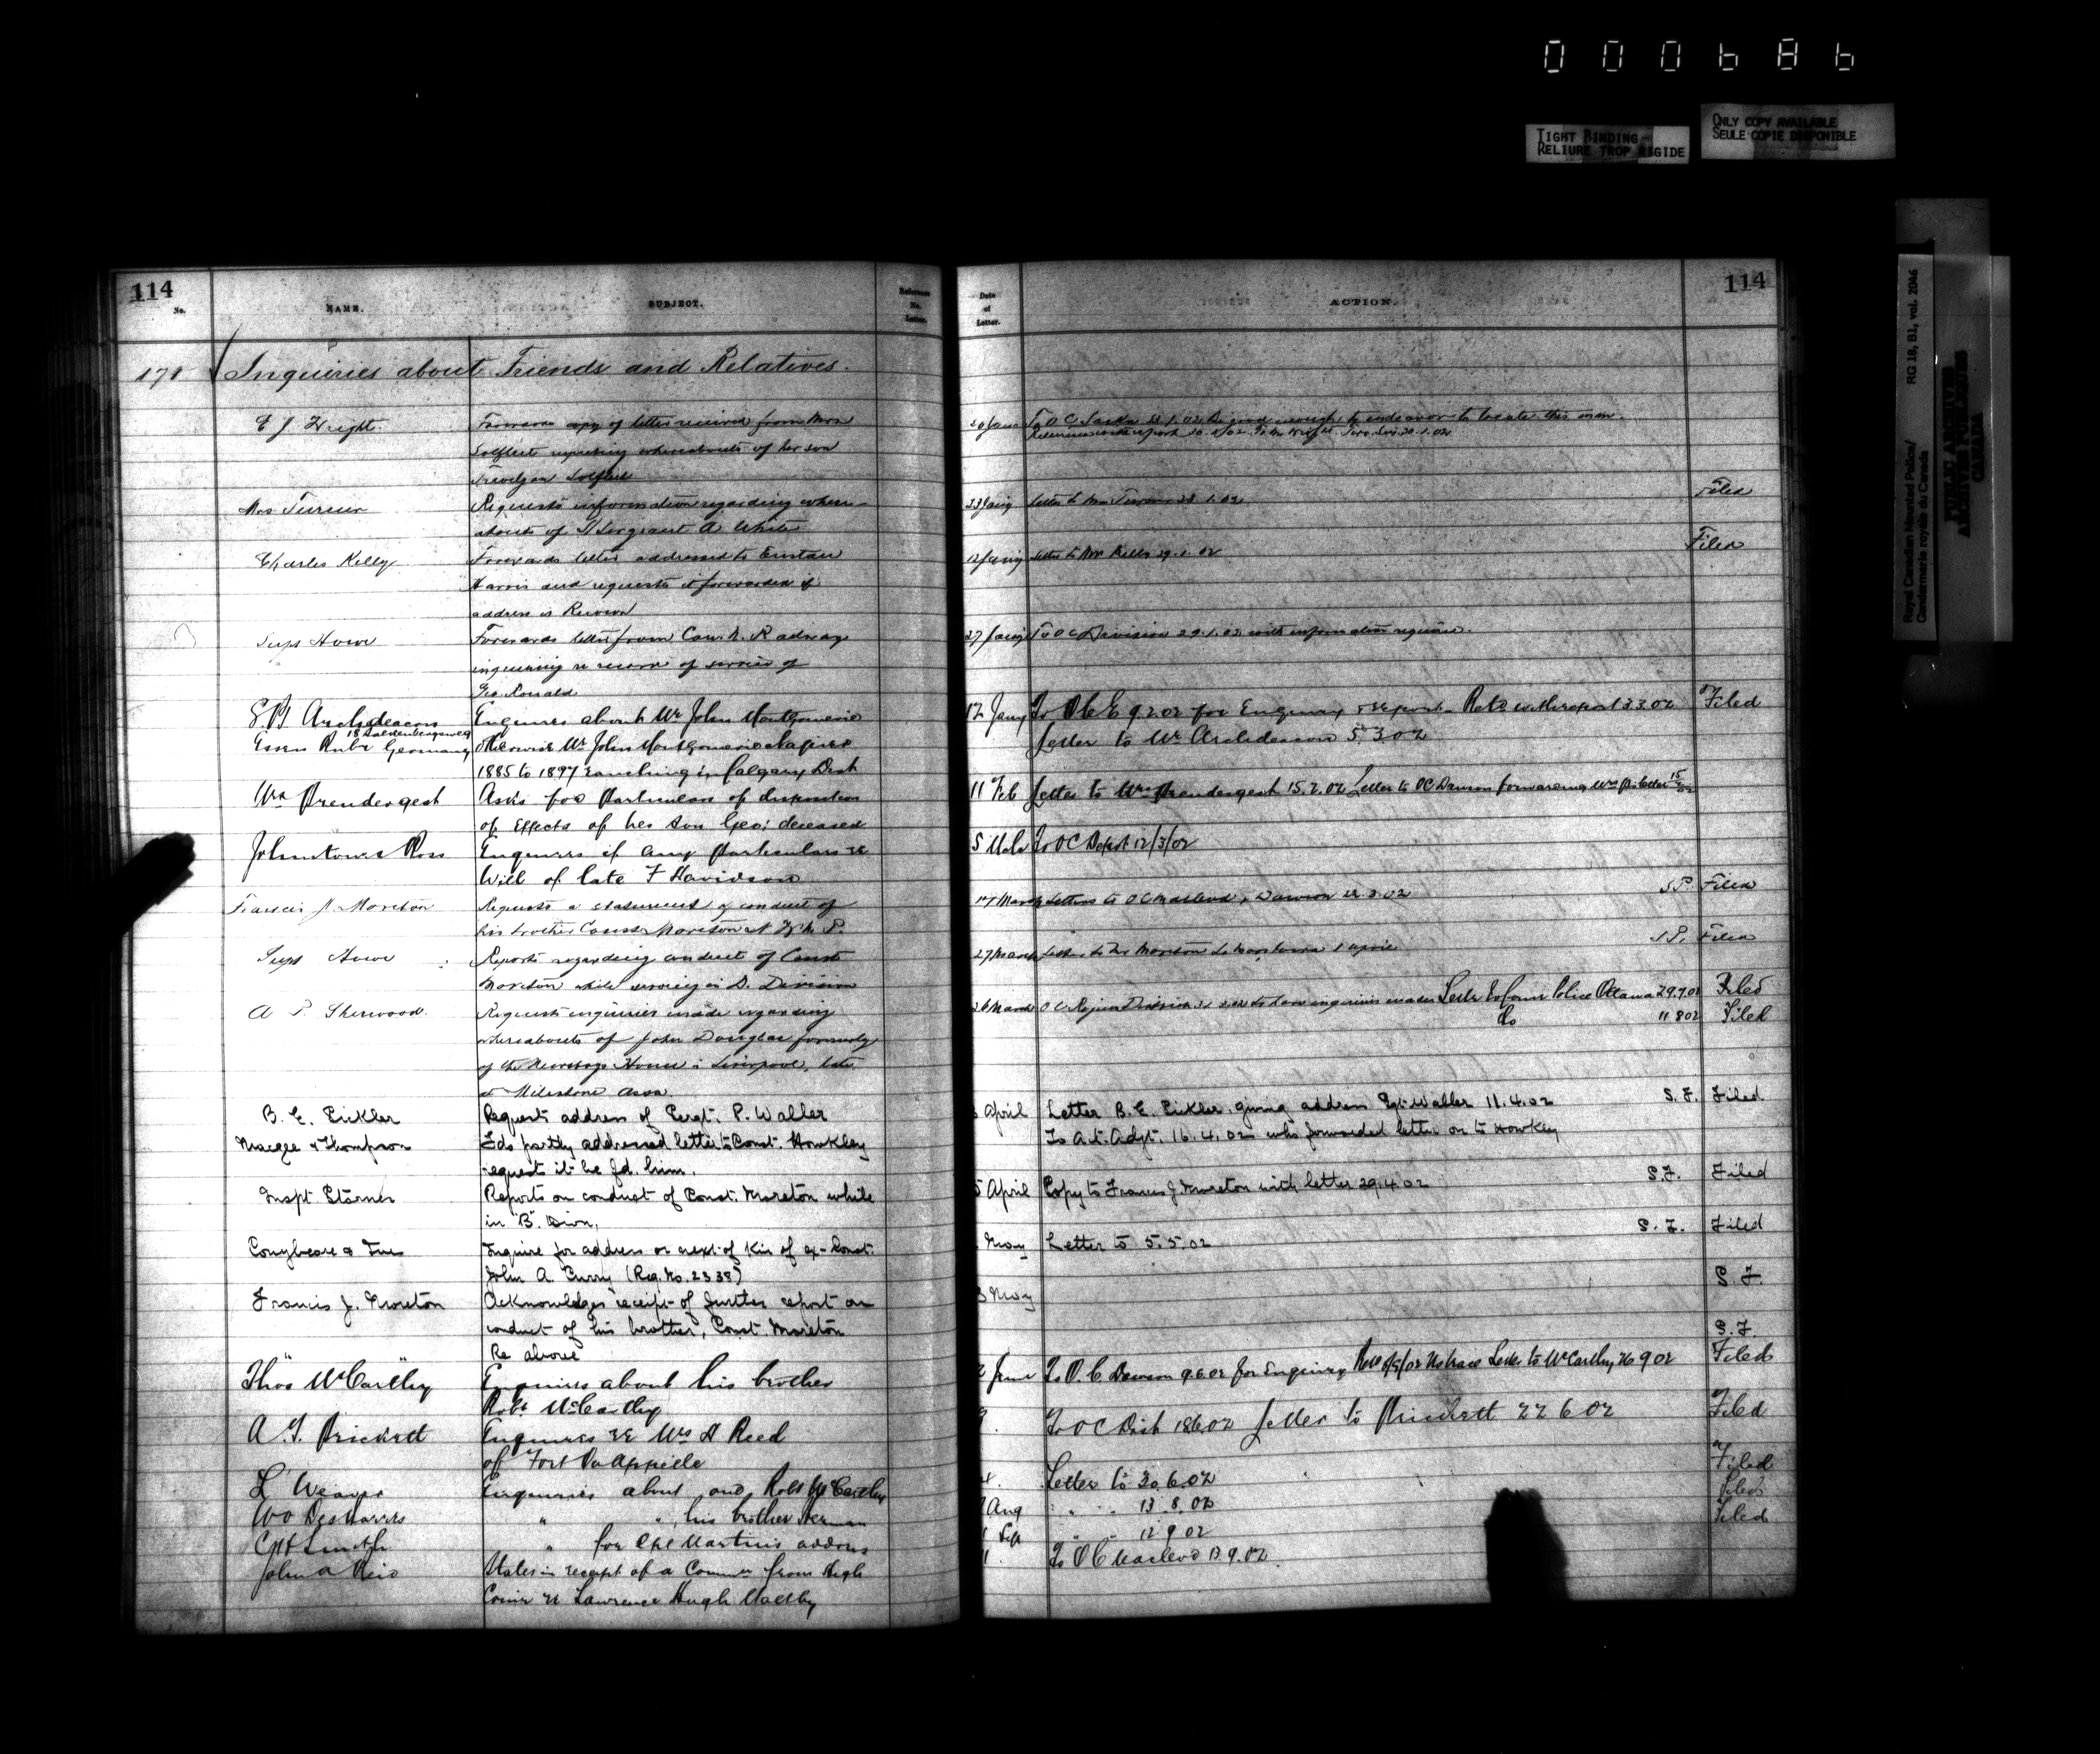 000686
TIGHT BINDING
RELIURE TROP RIGIDE
ONLY COPY AVAILABLE
SEULE COPIE DISPONIBLE
Royal Canadian Mounted Police/
Gendarmerie royale du Canada
RG 18, B1, vol. 2046
PUBLIC ARCHIVES
ARCHIVES PUBLIQUES
CANADA
114
No.
NAME.
SUBJECT.
Reference
No.
Letter.
Date
of
Letter.
ACTION.
114
171 Inquiries about Friends and Relatives.
E J Wright
Forwards copy of letter received from Mrs
whereabouts of her son
20 Jany
To O C 22.1.02 Be good enough to endeavor to locate this man.
Mrs Turner
Requests information regarding where-
abouts of S/Sergeant A White
23 Jany
Letter to Mrs Turner 28.1.02
Filed
Charles Kelly
Forwards letter addressed to Eustace
Harris and requests it forwarded if
address is Known
12 Jany
Letter to Mr Kelly 29.1.02
Filed
Supt Howe
Forwards letter from Can. N. Railway
inquiring re record of service of
Geo Ronald
27 Jany
To O C Division 29.1.02 with information required.
Archdeacon
Essen Ruhr Germany
Enquires about Mr John Montgomerie
otherwise Mr John Montgomerie
1885 to 1897 ranching in Calgary Dist
12 Jany
To O C E 9.2.02 for Enquiry & report. Retd with report 3.3.02
Letter to Mr Archdeacon 5 3 02
Filed
Mrs Prendergast
Asks for Particulars of disposition
of Effects of her son Geo: deceased
11 Feb
Letter to Mrs Prendergast 15.2.02 Letter to OC Dawson forwarding Mrs P's letter 15
Johnstone & Ross
Enquires if any Particulars re
Will of late F Davidson
5 Mch
To O C Depot 12/3/02
Francis J Moreton
Requests a statement of conduct of
his brother Const Moreton N.W.M.P.
17 March
Letters to O C Macleod & Dawson 22.3.02
Filed
Supt Howe
Reports regarding conduct of Const
Moreton while serving in D. Division
27 March
Letter to Mr Moreton 1 April
Filed
A P Sherwood.
Requests inquiries made regarding
whereabouts of John Douglas formerly
of the House in Liverpool, late
at Milestone Assa
26 March
O C Regina to have enquiries made Letter to Comr Police Ottawa 29.7.02
Filed
Do
11 8 02
Filed
B. E. Eickler
Request address of Sergt. P. Waller
April
Letter B. E. Eickler, giving address Sgt. Waller 11.4.02
S.F. Filed
Magee & Thompson
Fds partly addressed letter to Const. Hawkley
request it be fd. him.
To Act. Adjt. 16.4.02 who forwarded letter on to Hawkey
Inspt. Starnes
Reports on conduct of Const. Moreton while
in "B". Divn,
5 April
Copy to Francis J. Moreton with letter 29.4.02
S.F. Filed
Conybeare & Ives
Inquire for address or next of Kin of ex-Const.
John A. Curry (Reg. No. 2338)
May
Letter to 5.5.02
S.F. Filed
Francis J. Moreton
Acknowledges receipt of further report on
conduct of his brother, Const. Moreton
May
S.F.
" "
Re above
S.F.
Thos McCarthy
Enquires about his brother
Robt McCarthy
June
To O.C. Dawson 9.6.02 for Enquiry No trace Letter to McCarthy 26 9 02
Filed
A. T. Prickett
Enquires re Mrs Reed
of Fort Qu'Appelle
To O C Dist 18.6.02 Letter to Prickett 22 6 02
Filed
L Weaver
Enquiries about one Robt McCarthy
Letter to 30.6.02
Filed
W O Desharris
" " his brother Herman
Aug
" " 13.8.02
Filed
Smith
" for Martin's address
Sept
" " 12 9 02
Filed
John A Reid
States in receipt of a Commn from High
Comr re Lawrence Hugh
To O C Macleod 13.9.02.